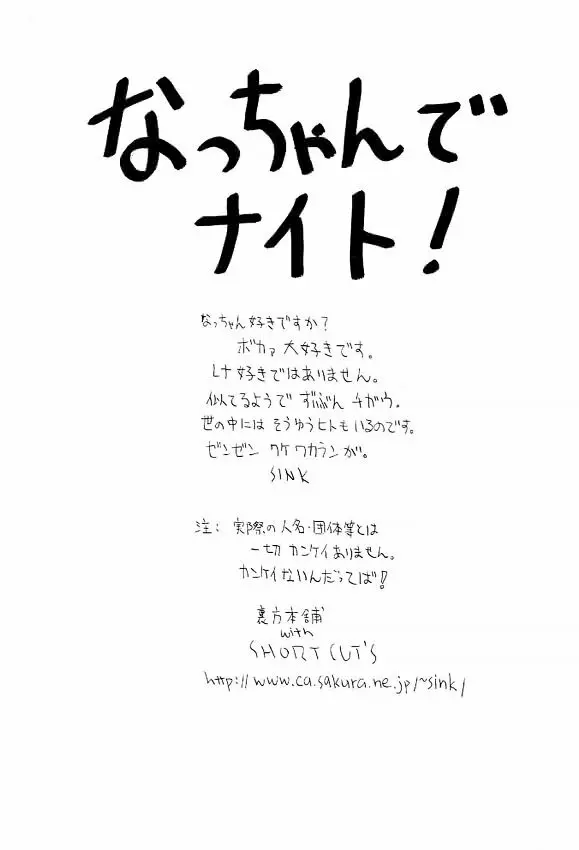 なっちゃんで
ナイト!
なっちゃん好きですか?
ボカァ 大好きです。
Lナ 好きではありません。
似てるようで ずいぶん チガウ.
世の中には そうゆうヒトもいるのです。
ゼンゼン ワケ ワカランが。
SINK
注: 実際の人名・団体等とは
一切 カンケイありません。
カンケイないんだってば!
裏方本舗
with
SHORT CUT'S
http://www.ca.sakura.ne.jp/~sink/